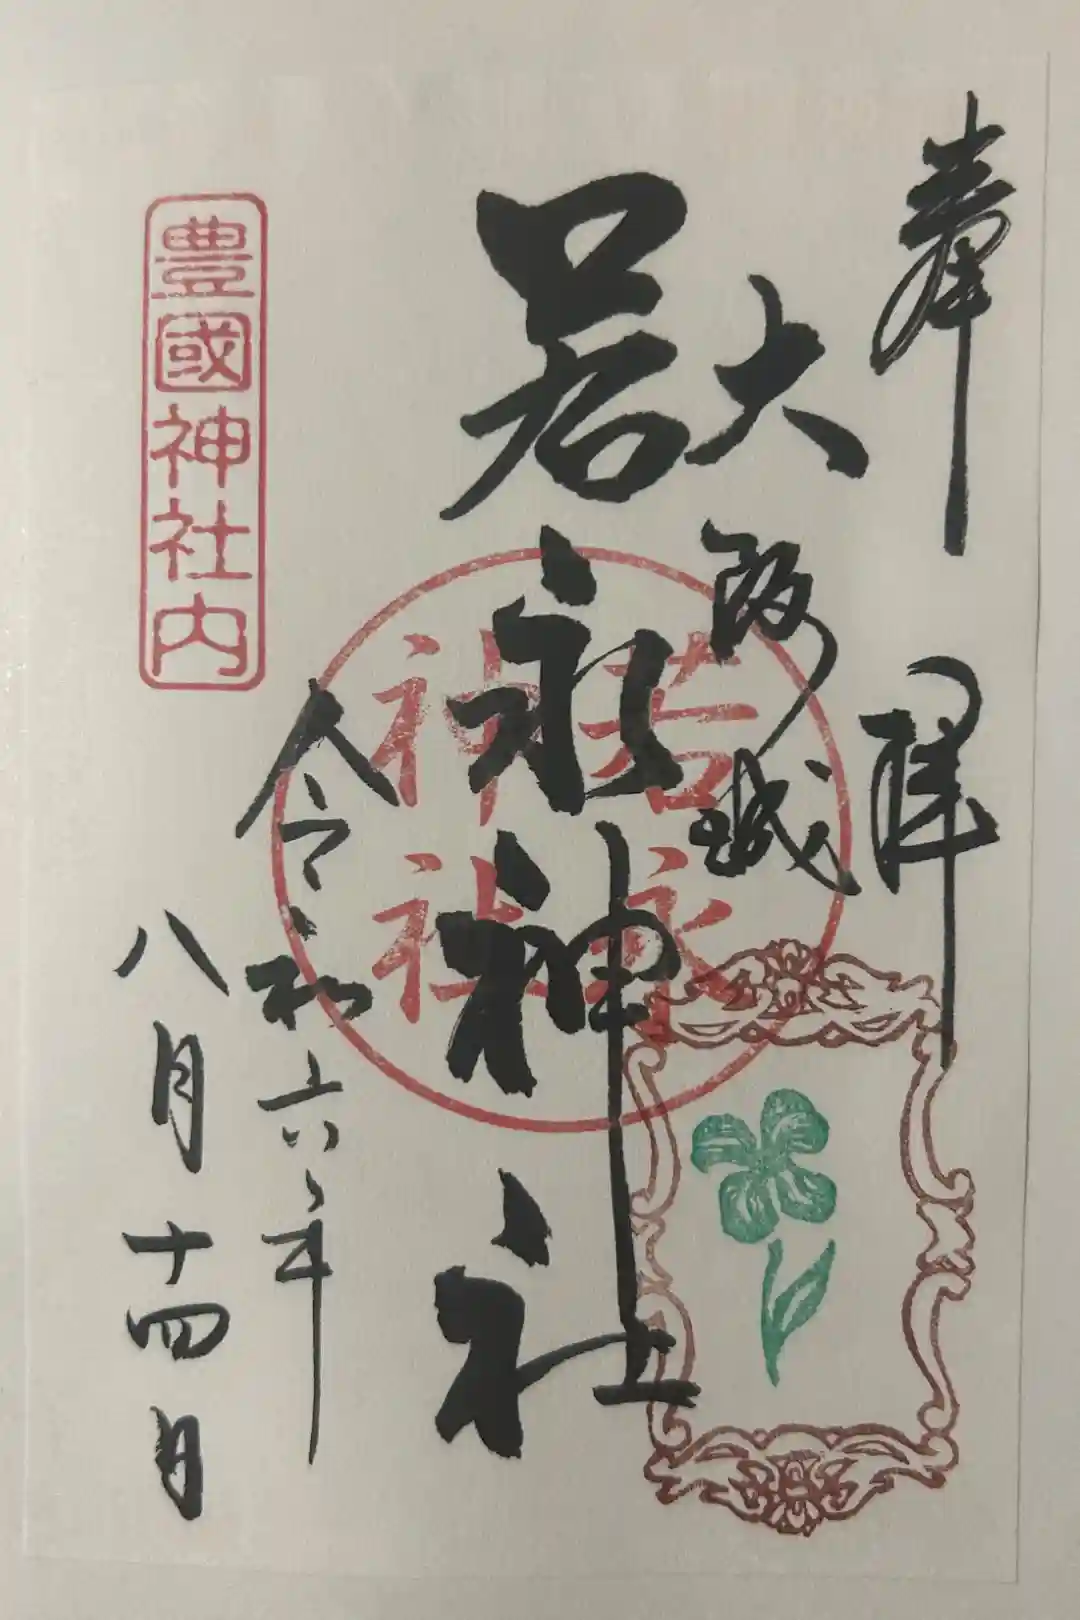 奉拝
大阪城
若永神社
若永
神社
令和六年
八月十四日
豊國神社内